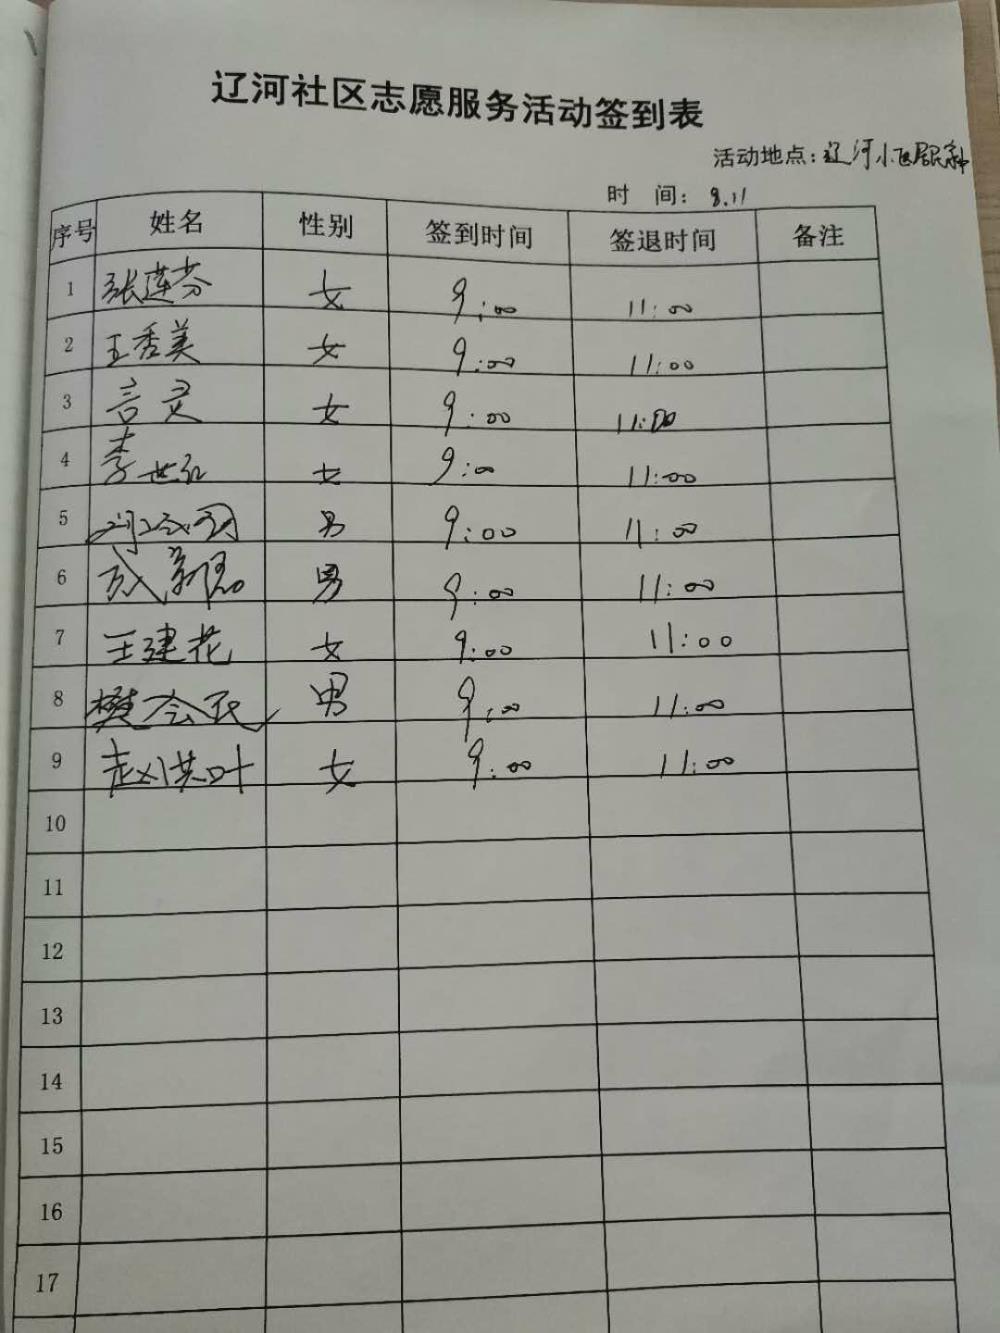 辽河社区志愿服务活动签到表
活动地点:辽河小区居民家中
时 间: 8.11
序号 姓名 性别 签到时间 签退时间 备注
1 张莲芬 女 9:00 11:00
2 王秀美 女 9:00 11:00
3 言灵 女 9:00 11:00
4 李世红 女 9:00 11:00
5 男 9:00 11:00
6 男 9:00 11:00
7 王建花 女 9:00 11:00
8 樊会民 男 9:00 11:00
9 赵洪叶 女 9:00 11:00
10
11
12
13
14
15
16
17